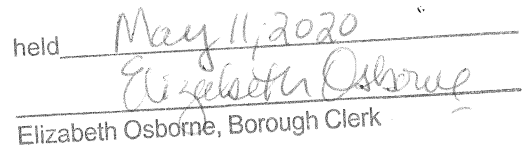 held May 11, 2020
Elizabeth Osborne
Elizabeth Osborne, Borough Clerk